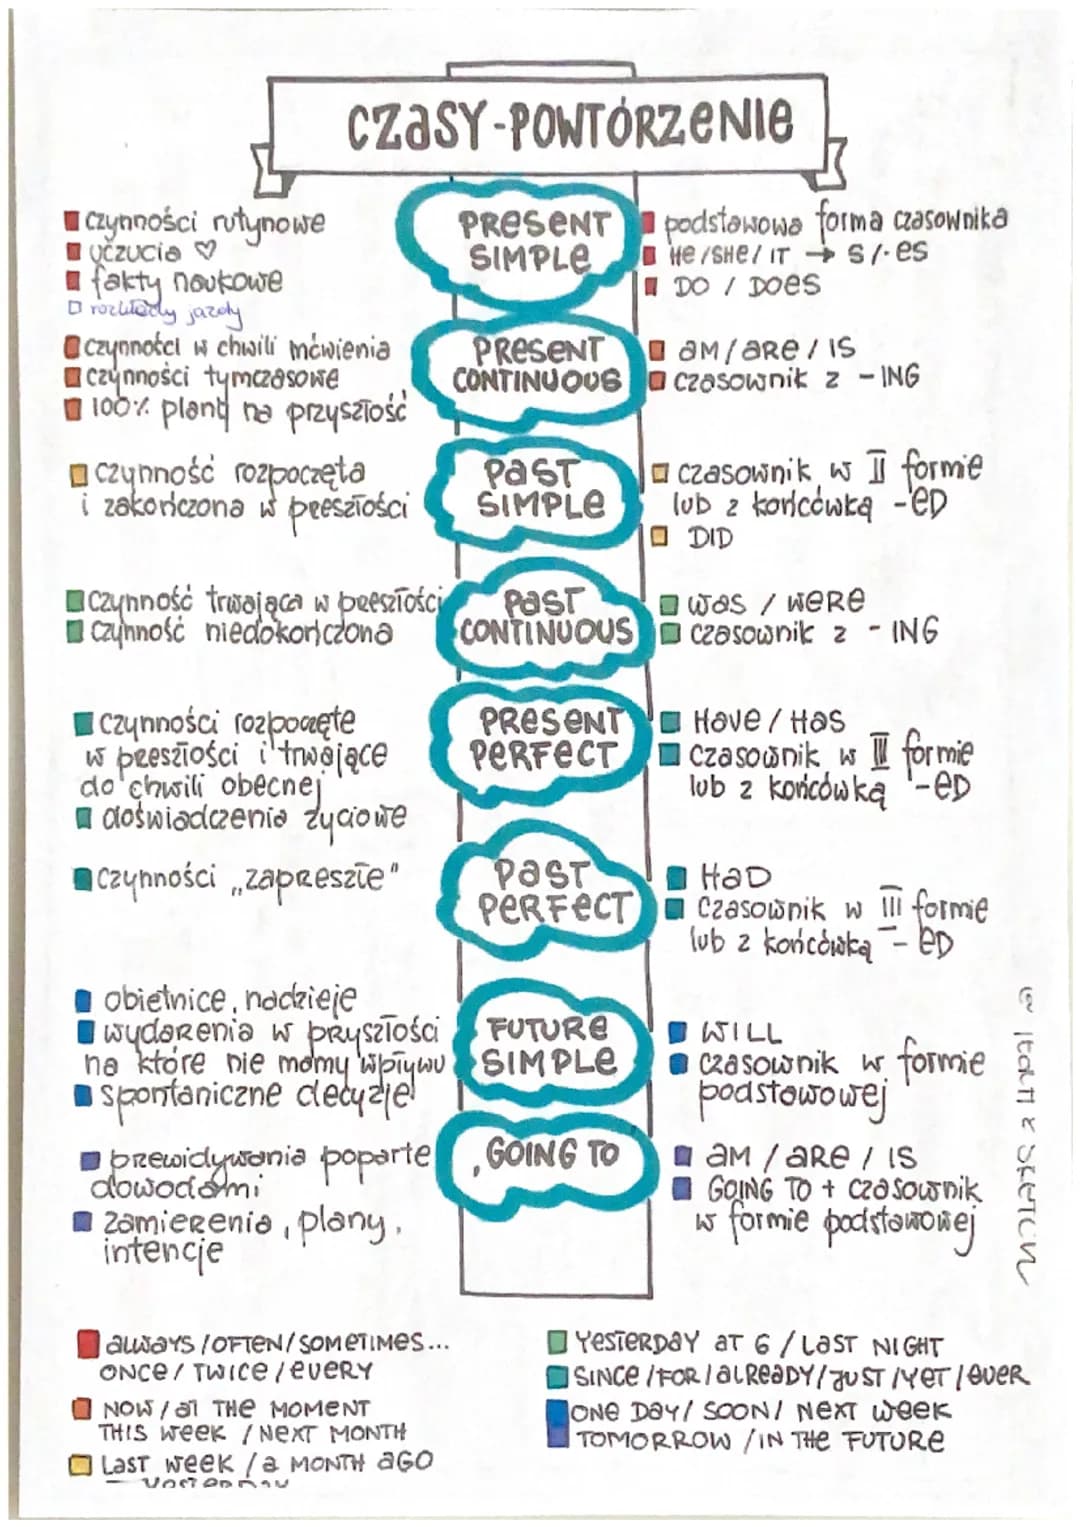 CZASY-POWTÓRZENIE
czynności rutynowe
uczucia ♡
fakty naukowe
rozkłady jazdy
PRESENT
SIMPLE
podstawowa forma czasownika
HE/SHE/IT → S/-ES
DO / DOES
czynności w chwili mówienia
czynności tymczasowe
100% plany na przyszłość
PRESENT
CONTINUOUS
AM/ARE/IS
czasownik z -ING
czynność rozpoczęta
i zakończona w przeszłości
PAST
SIMPLE
czasownik w II formie
lub z końcówką -ED
DID
czynność trwająca w przeszłości
czynność niedokończona
PAST
CONTINUOUS
WAS / WERE
czasownik z -ING
czynności rozpoczęte
w przeszłości i trwające
do chwili obecnej
doświadczenia życiowe
PRESENT
PERFECT
HAVE/HAS
czasownik w III formie
lub z końcówką -ED
czynności „zaprzeszłe"
PAST
PERFECT
HAD
czasownik w III formie
lub z końcówką -ED
obietnice, nadzieje
wydarzenia w przyszłości
na które nie mamy wpływu
spontaniczne decyzje
FUTURE
SIMPLE
WILL
czasownik w formie
podstawowej
przewidywania poparte
dowodami
zamierzenia, plany,
intencje
GOING TO
AM / ARE / IS
GOING TO + czasownik
w formie podstawowej
ALWAYS/OFTEN/SOMETIMES...
ONCE/TWICE/EVERY
NOW/AT THE MOMENT
THIS WEEK / NEXT MONTH
LAST WEEK /A MONTH AGO
YESTERDAY
YESTERDAY AT 6 / LAST NIGHT
SINCE/FOR/ALREADY/JUST/YET/EVER
ONE DAY/ SOON/ NEXT WEEK
TOMORROW /IN THE FUTURE